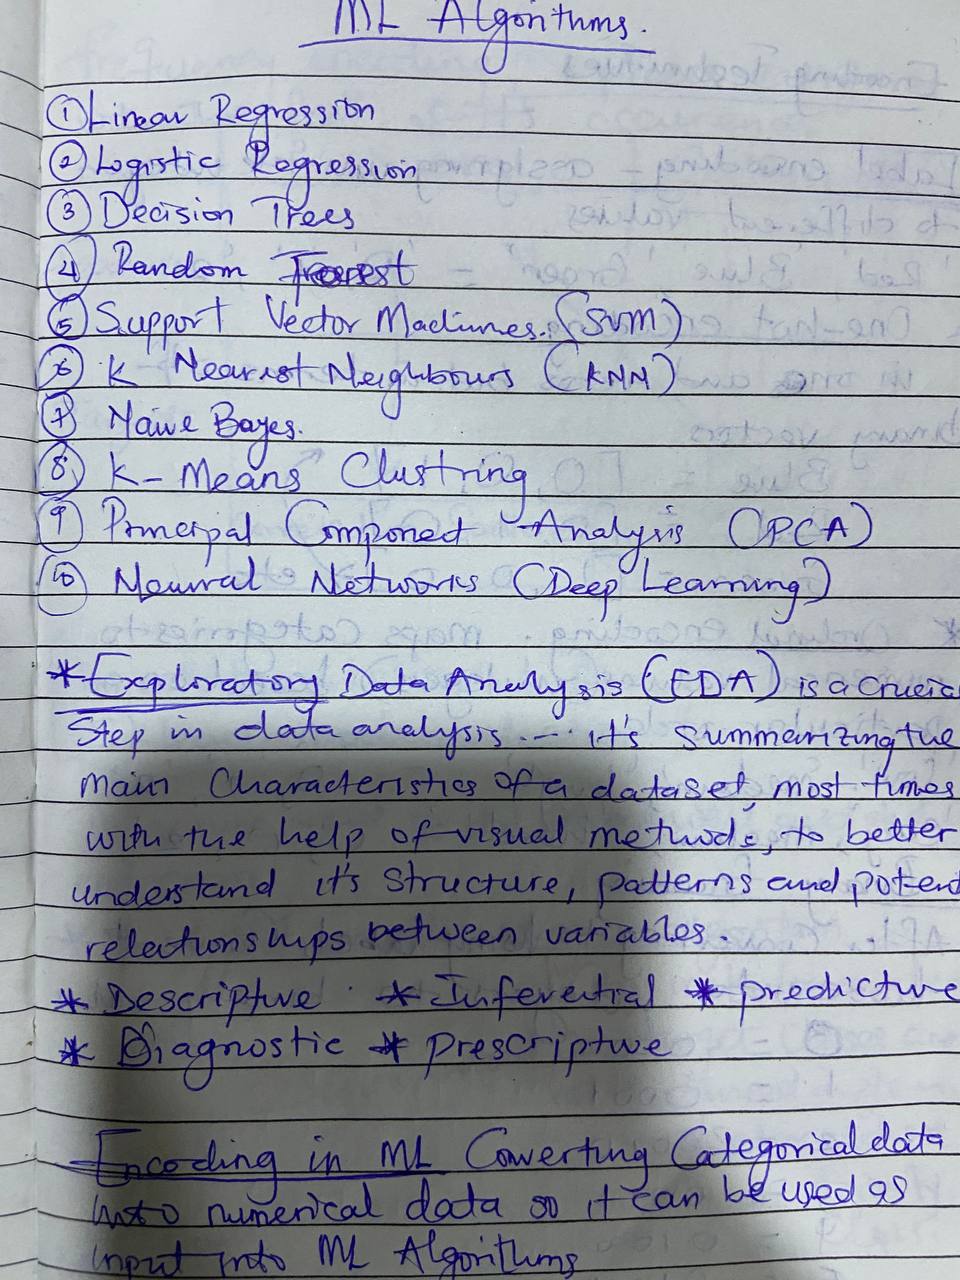 ML Algorithms.
① Linear Regression
② Logistic Regression
③ Decision Trees
④ Random Forest
⑤ Support Vector Machines. (SVM)
⑥ K Nearest Neighbours (KNN)
⑦ Naive Bayes.
⑧ K-Means Clustring
⑨ Principal Componed Analysis (PCA)
⑩ Neural Networks (Deep Learning)
* Exploratory Data Analysis (EDA) is a crucia
Step in data analysis... it's summarizing the
main Characteristics of a dataset, most times
with the help of visual methods, to better
understand it's structure, patterns and potent
relationships between variables.
* Descriptive * Inferential * predictive
* Diagnostic * prescriptive
Encoding in ML Converting Categorical data
into numerical data so it can be used as
input into ML Algorithms